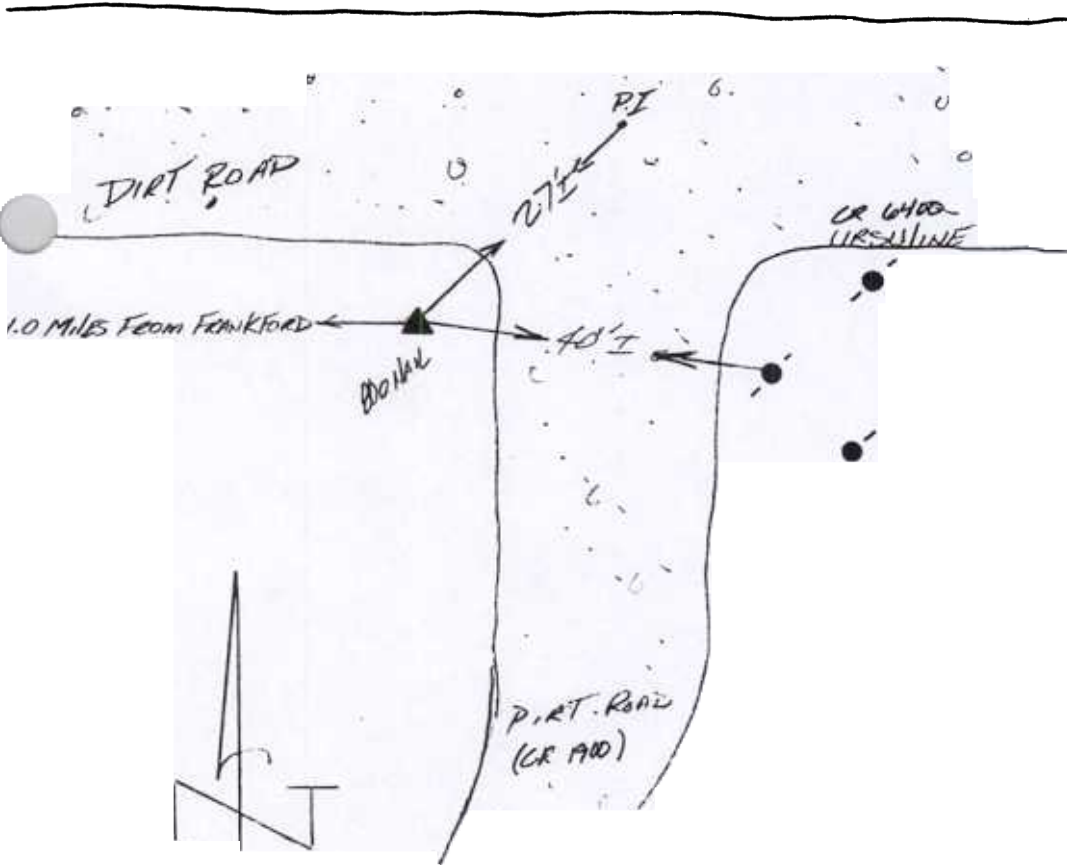 P.I
DIRT ROAD
27'±
CR 6400
URSULINE
1.0 MILES FROM FRANKFORD
40'±
60D NAIL
DIRT ROAD
(CR 1900)
N